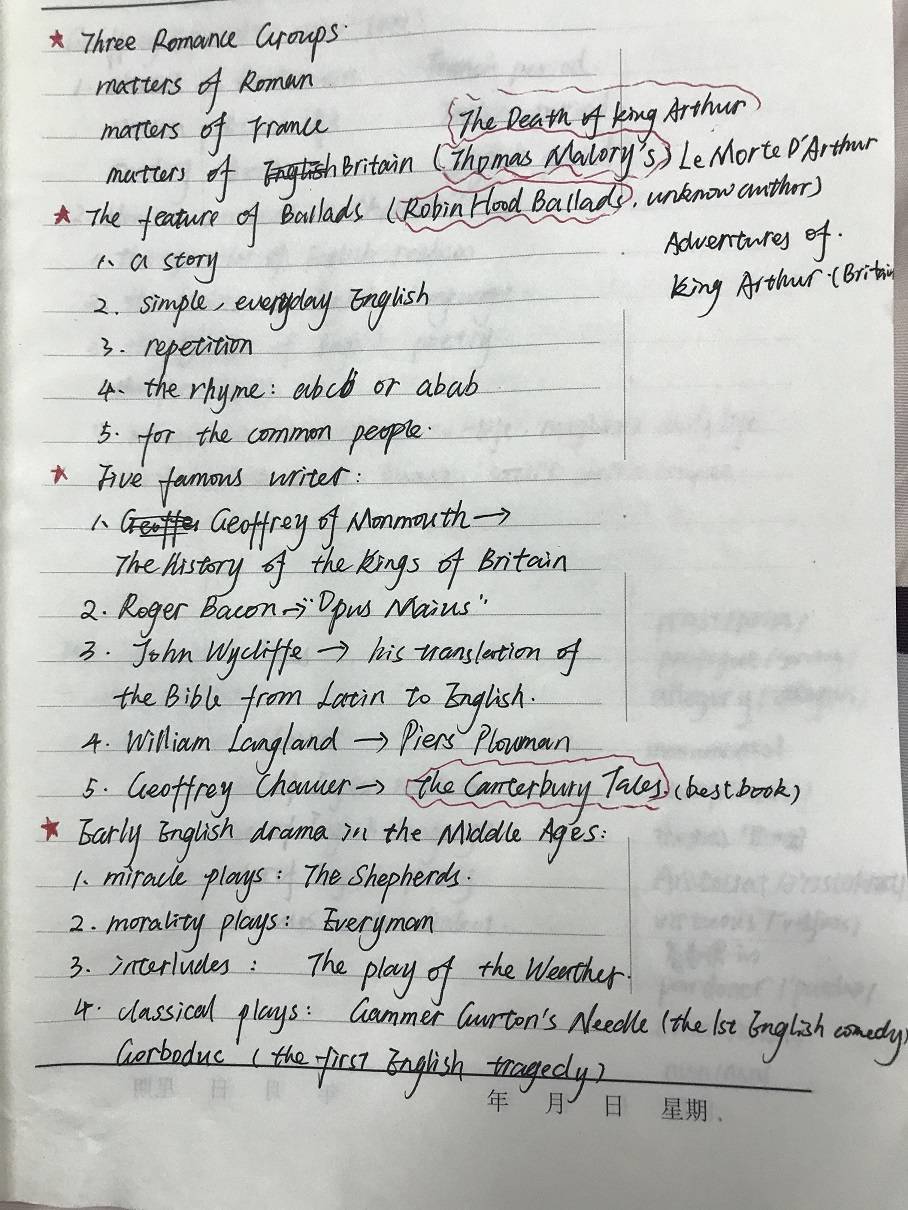 ★ Three Romance Groups:
matters of Roman
matters of France
The Death of king Arthur
matters of English Britain (Thomas Malory's) Le Morte D'Arthur
★ The feature of Ballads (Robin Hood Ballads, unknow author)
Adventures of.
king Arthur. (Britain
1. a story
2. simple, everyday English
3. repetition
4. the rhyme: abcb or abab
5. for the common people.
★ Five famous writer:
1. Geoffe Geoffrey of Monmouth →
The History of the Kings of Britain
2. Roger Bacon → "Opus Maius"
3. John Wycliffe → his translation of
the Bible from Latin to English.
4. William Langland → Piers Plowman
5. Geoffrey Chaucer → The Canterbury Tales. (best book)
★ Early English drama in the Middle Ages:
1. miracle plays: The Shepherds.
2. morality plays: Everyman
3. interludes: The play of the Weather.
4. classical plays: Gammer Gurton's Needle (the 1st English comedy)
Gorboduc (the first English tragedy)
年 月 日 星期